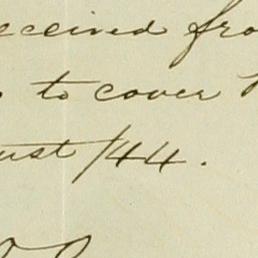 eceived fro
to cover
ust /44.